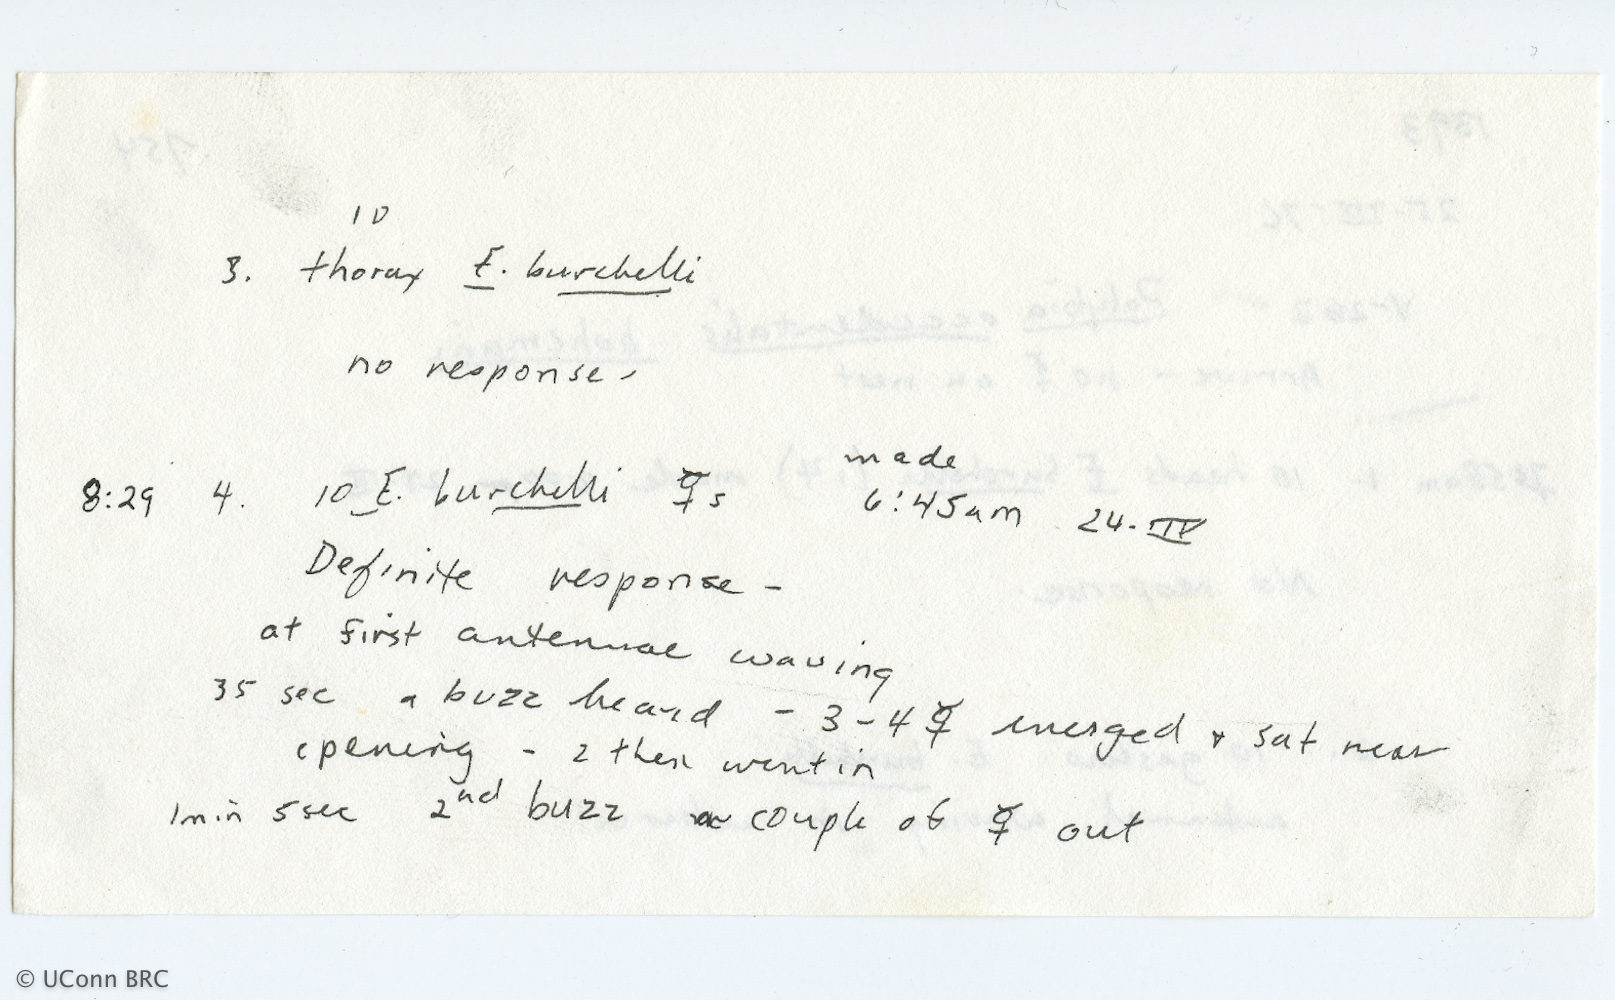 10
3. thorax E. burchelli
no response -
made
8:29 4. 10 E. burchelli ☿s 6:45am 24-IV
Definite response -
at first antennae waving
35 sec a buzz heard - 3-4 ☿ emerged + sat near
opening - 2 then went in
1min 5sec 2nd buzz a couple of ☿ out
© UConn BRC